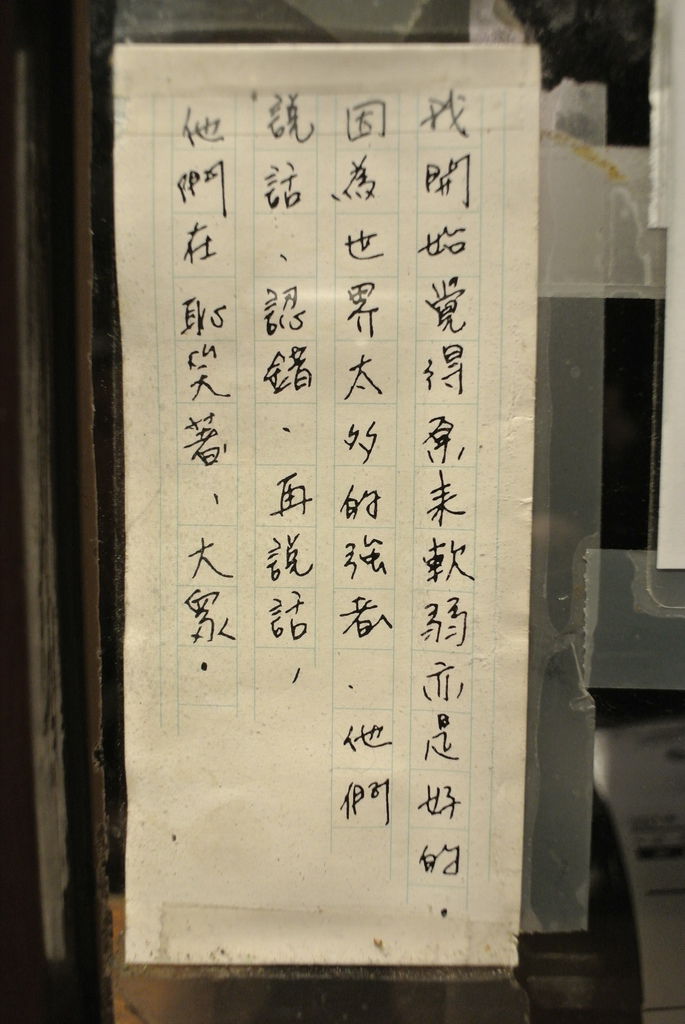 我開始覺得原來軟弱亦是好的.
因為世界太多的強者.他們
說話、認錯、再說話,
他們在恥笑著、大眾.